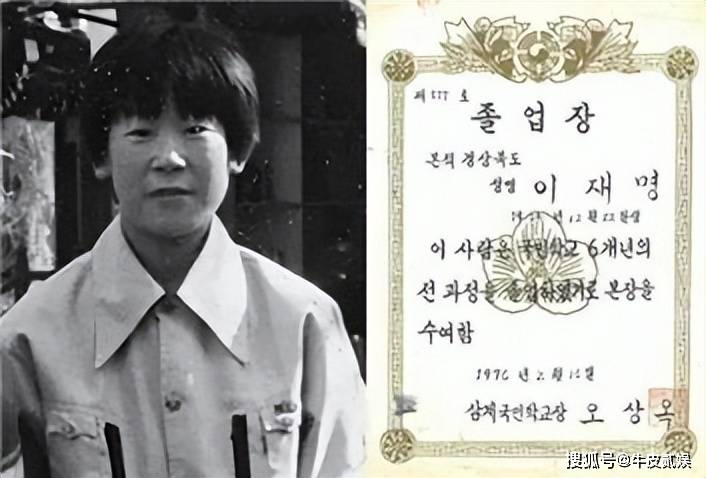 제 호
졸 업 장
본적 경상북도
성명 이 재 명
년 12월 22일생
이 사람은 국민학교 6개년의
전 과정을 졸업하였기로 본장을
수여함
1976 년 2 월 일
삼계국민학교장 오 상 옥
搜狐号@牛皮贰娱